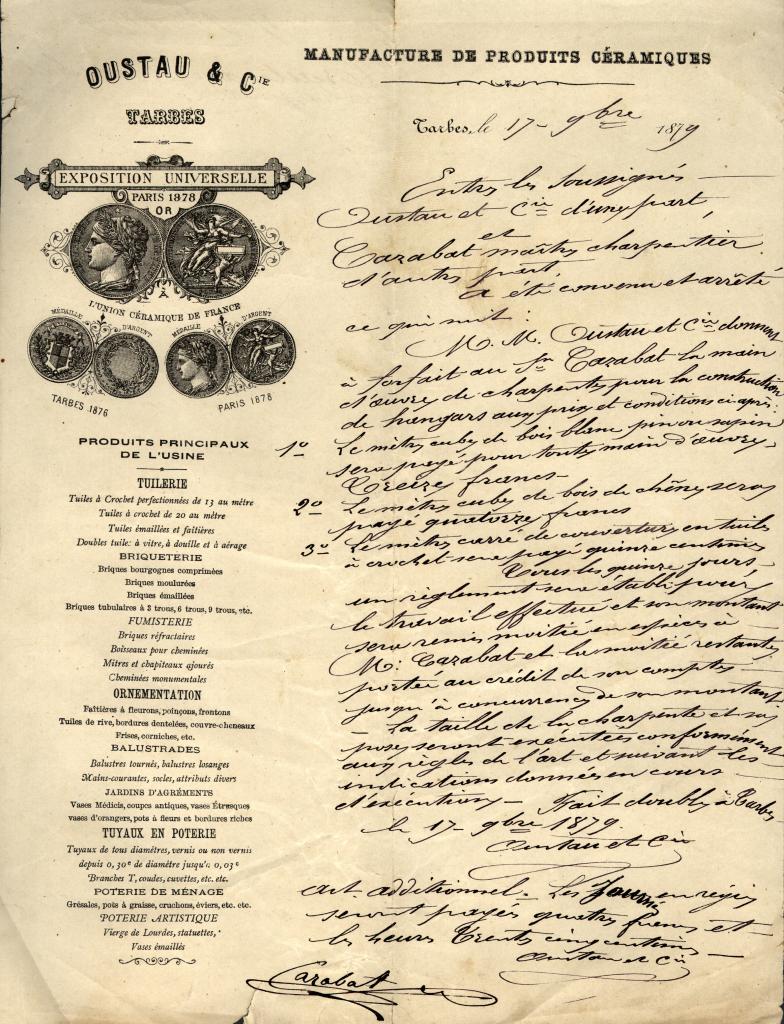 OUSTAU & CIE
TARBES
EXPOSITION UNIVERSELLE
PARIS 1878
OR
À
L'UNION CÉRAMIQUE DE FRANCE
MÉDAILLE D'ARGENT
MÉDAILLE D'ARGENT
TARBES 1876
PARIS 1878
PRODUITS PRINCIPAUX
DE L'USINE
TUILERIE
Tuiles à Crochet perfectionnées de 13 au mètre
Tuiles à crochet de 20 au mètre
Tuiles émaillées et faîtières
Doubles tuiles à vitre, à douille et à aérage
BRIQUETERIE
Briques bourgognes comprimées
Briques moulurées
Briques émaillées
Briques tubulaires à 3 trous, 6 trous, 9 trous, etc.
FUMISTERIE
Briques réfractaires
Boisseaux pour cheminées
Mitres et chapiteaux ajourés
Cheminées monumentales
ORNEMENTATION
Faîtières à fleurons, poinçons, frontons
Tuiles de rive, bordures dentelées, couvre-cheneaux
Frises, corniches, etc.
BALUSTRADES
Balustres tournés, balustres losanges
Mains-courantes, socles, attributs divers
JARDINS D'AGRÉMENTS
Vases Médicis, coupes antiques, vases Étrusques
vases d'orangers, pots à fleurs et bordures riches
TUYAUX EN POTERIE
Tuyaux de tous diamètres, vernis ou non vernis
depuis 0,30c de diamètre jusqu'à 0,03c
Branches T, coudes, cuvettes, etc. etc.
POTERIE DE MÉNAGE
Grésales, pots à graisse, cruchons, éviers, etc. etc.
POTERIE ARTISTIQUE
Vierge de Lourdes, statuettes,
Vases émaillés
MANUFACTURE DE PRODUITS CÉRAMIQUES
Tarbes, le 17 - 9bre 1879
Entre les Soussignés
Oustau et Cie d'une part,
et
Cazabat maître charpentier
d'autre part
a été convenu et arrêté
ce qui suit :
M. M. Oustau et Cie donnent
à forfait au Sr Cazabat la main
d'œuvre de charpentes pour la construction
de hangars aux prix et conditions ci-après :
1° Le mètre cube de bois blanc pin ou sapin
sera payé pour toute main d'œuvre,
Treize francs -
2° Le mètre cube de bois de chêne sera
payé quatorze francs
3° Le mètre carré de couverture en tuile
à crochet sera payé quinze centimes
Tous les quinze jours,
un règlement sera établi pour
le travail effectué et son montant
sera remis moitié en espèces à
M. Cazabat et la moitié restante
portée au crédit de son compte
jusqu'à concurrence de son montant
- La taille de la charpente et sa
pose seront exécutées conformément
aux règles de l'art et suivant les
indications données en cours
d'exécution - Fait double à Tarbes
le 17 - 9bre 1879
Oustau et Cie
art. additionnel - Les Journées en régie
seront payées quatre francs et
les heures Trente cinq centimes -
Oustau et Cie
Cazabat